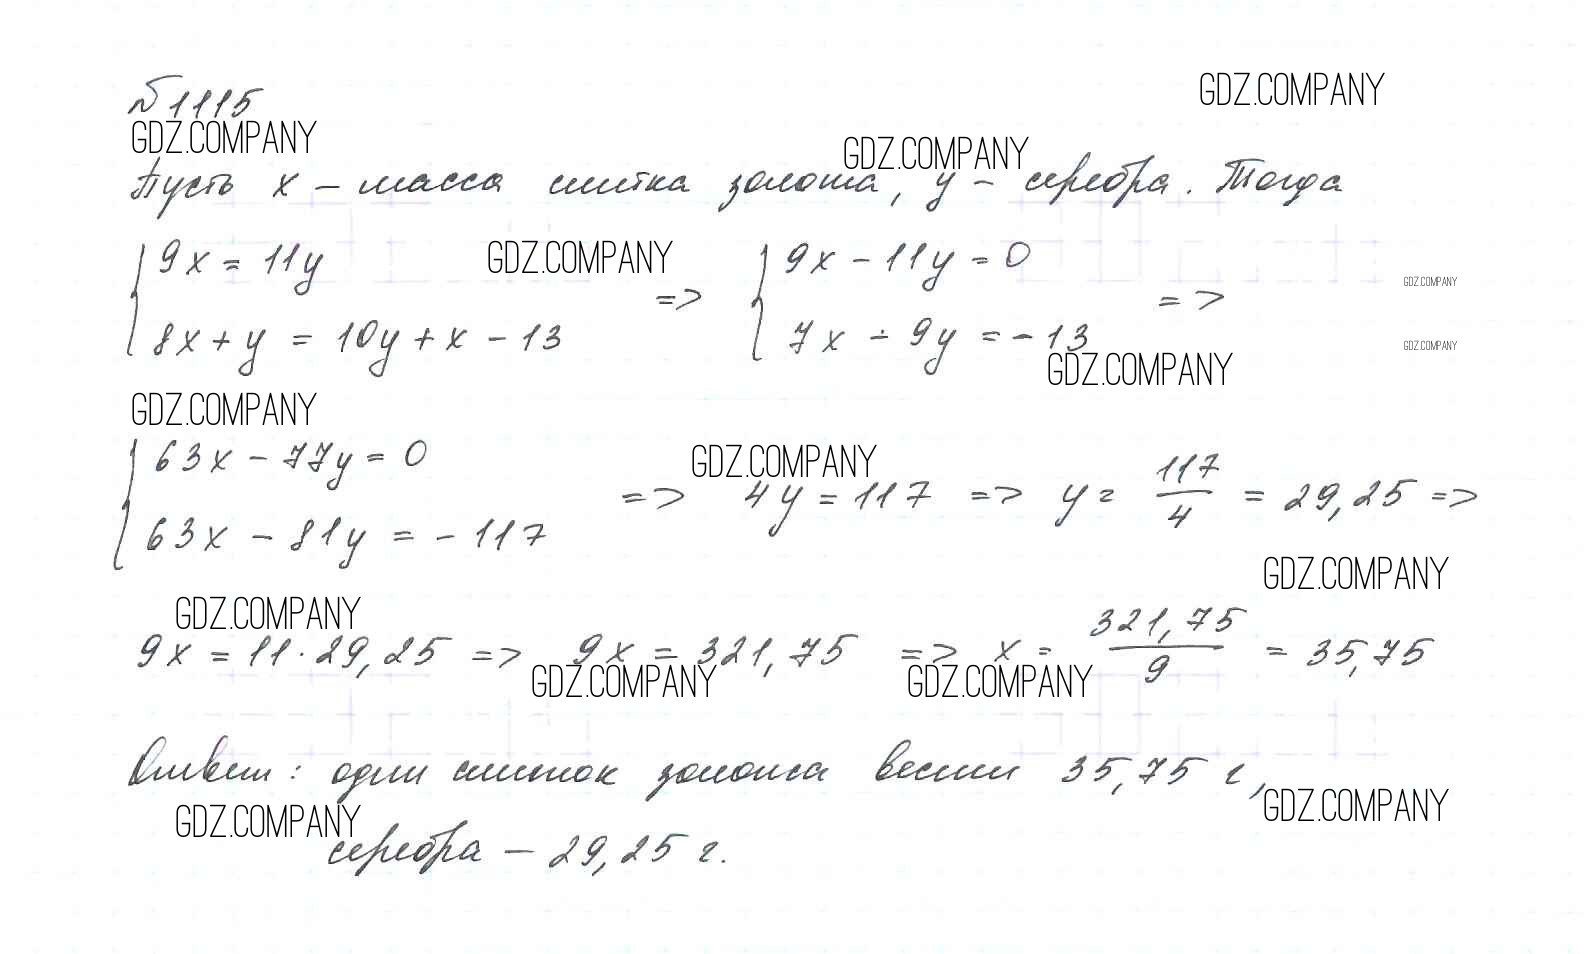 №1115
GDZ.COMPANY
GDZ.COMPANY
GDZ.COMPANY
Пусть x – масса слитка золота, y – серебра. Тогда
{ 9x = 11y
{ 8x + y = 10y + x – 13
=>
{ 9x – 11y = 0
{ 7x – 9y = –13
=>
GDZ.COMPANY
GDZ.COMPANY
GDZ.COMPANY
GDZ.COMPANY
GDZ.COMPANY
{ 63x – 77y = 0
{ 63x – 81y = –117
=> 4y = 117 => y = 117/4 = 29,25 =>
GDZ.COMPANY
GDZ.COMPANY
GDZ.COMPANY
9x = 11 · 29,25 => 9x = 321,75 => x = 321,75/9 = 35,75
GDZ.COMPANY
GDZ.COMPANY
Ответ: один слиток золота весит 35,75 г,
GDZ.COMPANY
GDZ.COMPANY
серебра – 29,25 г.